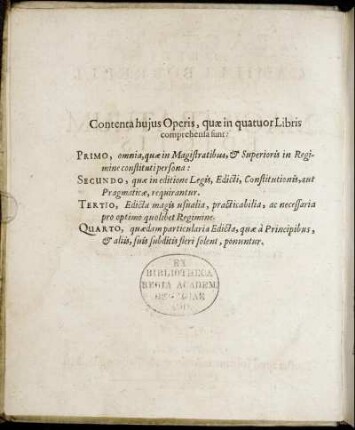 Contenta hujus Operis, quæ in quatuor Libris
comprehensa sunt:
PRIMO, omnia, quæ in Magistratibus, & Superioris in Regi-
mine constituti persona:
SECUNDO, quæ in editione Legis, Edicti, Constitutionis, aut
Pragmaticæ, requirantur.
TERTIO, Edicta magis usualia, practicabilia, ac necessaria
pro optimo quolibet Regimine.
QUARTO, quædam particularia Edicta, quæ à Principibus,
& aliis, suis subditis fieri solent, ponuntur.
EX
BIBLIOTHECA
REGIA ACADEM.
GEORGIAE
AUG.